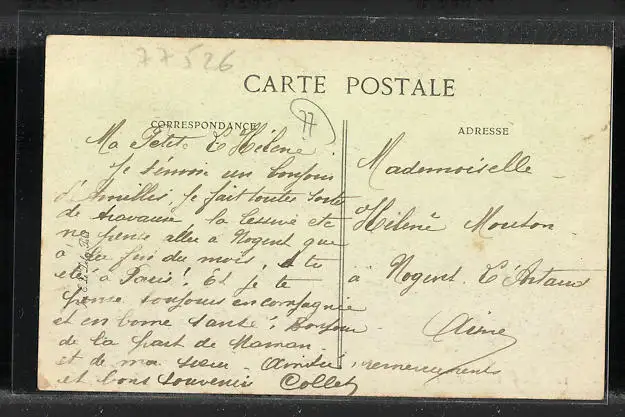 77526
CARTE POSTALE
77
CORRESPONDANCE
ADRESSE
Ma Petite Hélène
Je t'envoie un bonjour
d'Amillis. Je fait toutes sortes
de travaux la lessive etc
ne pense aller à Nogent que
à la fin du mois, tu
à Paris! Et je te
pense toujours en compagnie
et en bonne santé! Bonjour
de la part de Maman
et de ma sœur. Amitié, remerciements
et bons souvenirs Collet
Mademoiselle
Hélène Mouton
à Nogent L'Artaud
Aisne